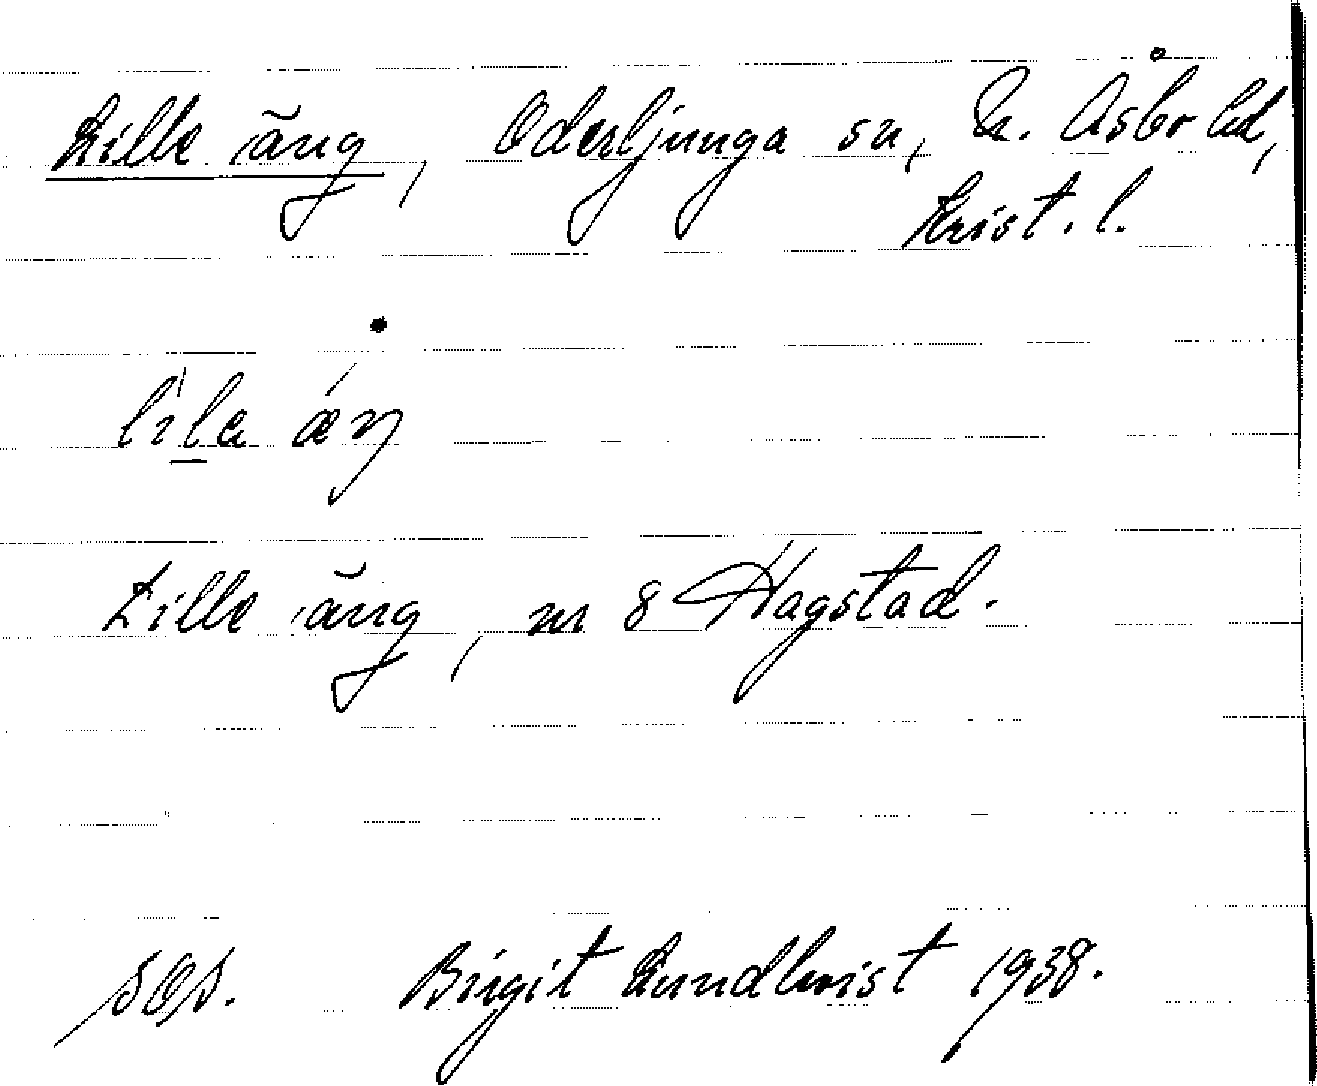 Lille äng, Oderljunga sn, N. Åsbo hd,
Krist. l.
Lille äng, nr 8 Hagstad.
SOS. Birgit Lundkvist 1938.